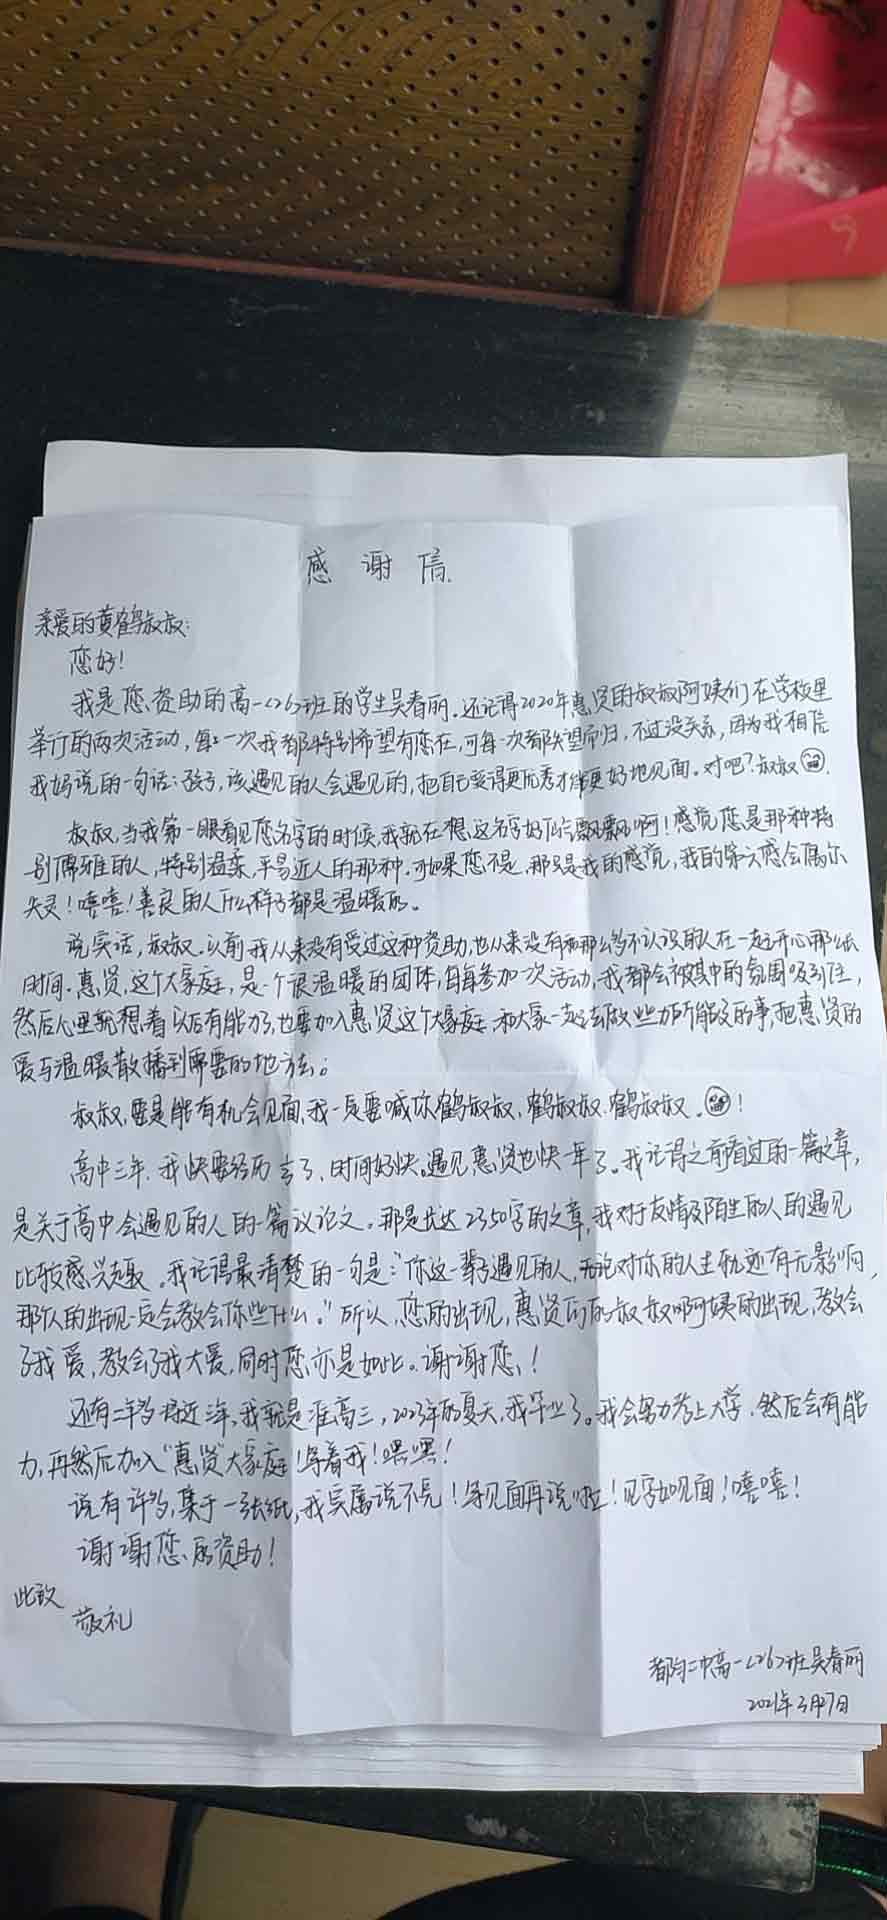 感谢信
亲爱的黄鹤叔叔:
您好!
我是您资助的高一<26>班的学生吴春丽。还记得2020年惠贤的叔叔阿姨们在学校里
举行的两次活动,每一次我都特别希望有您在,可每一次都失望而归,不过没关系,因为我相信
我妈说的一句话:孩子,该遇见的人会遇见的,把自己变得更优秀才能更好地见面。对吧?叔叔
叔叔,当我第一眼看见您名字的时候,我就在想这名字好仙飘飘啊!感觉您是那种特
别儒雅的人,特别温柔,平易近人的那种。可如果您不是,那只是我的感觉,我的第六感会偶尔
失灵!嘻嘻!善良的人什么样子都是温暖的。
说实话,叔叔。以前我从来没有受过这种资助,也从来没有和那么多不认识的人在一起开心那么长
时间。惠贤,这个大家庭,是一个很温暖的团体,每参加一次活动,我都会被其中的氛围吸引住,
然后心里就想着以后有能力了,也要加入惠贤这个大家庭,和大家一起去做些力所能及的事,把惠贤的
爱与温暖散播到需要的地方去。
叔叔,要是能有机会见面,我一定要喊你鹤叔叔,鹤叔叔,鹤叔叔。!
高中三年,我快要经历去了,时间好快。遇见惠贤也快一年了。我记得之前看过的一篇文章,
是关于高中会遇见的人的一篇议论文。那是长达2350字的文章,我对于友情及陌生的人的遇见
比较感兴趣。我记得最清楚的一句是:“你这一辈子遇见的人,无论对你的人生轨迹有无影响,
那人的出现一定会教会你些什么。”所以,您的出现,惠贤所有叔叔啊阿姨的出现,教会
了我爱,教会了我大爱,同时您亦是如此。谢谢您!
还有二年多将近三年,我就是准高三,2023年的夏天,我毕业了。我会努力考上大学,然后会有能
力,再然后加入“惠贤”大家庭!等着我!嘿嘿!
说有许多,集于一张纸,我实属说不完!等见面再说啦!见字如见面!嘻嘻!
谢谢您的资助!
此致
敬礼
都匀二中高一<26>班吴春丽
2021年3月27日